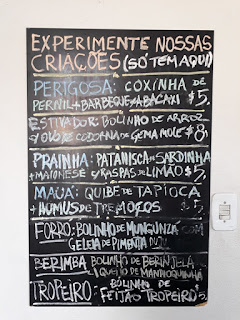 EXPERIMENTE NOSSAS
CRIAÇÕES (SÓ TEM AQUI)
PERIGOSA: COXINHA DE
PERNIL + BARBEQUE ABACAXI $5,
ESTIVADOR: BOLINHO DE ARROZ
C/ OVO DE CODORNA DE GEMA MOLE $8,
PRAINHA: PATANISCA SARDINHA
+ MAIONESE C/ RASPAS DE LIMÃO $5,
MAUÁ: QUIBE DE TAPIOCA
+ HUMUS DE TREMOÇOS $5,
FORRO: BOLINHO DE MUNGUNZÁ COM
GELEIA DE PIMENTA
BERIMBA BOLINHO DE BERINJELA
QUEIJO DE MANDIOQUINHA
TROPEIRO: BOLINHO DE
FEIJÃO TROPEIRO 5,